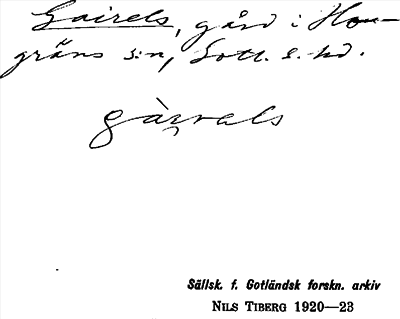 Gairels, gård i Hon-
gräns s:n, Gotl. s. hd.
gàrvals
Sällsk. f. Gotländsk forskn. arkiv
NILS TIBERG 1920—23